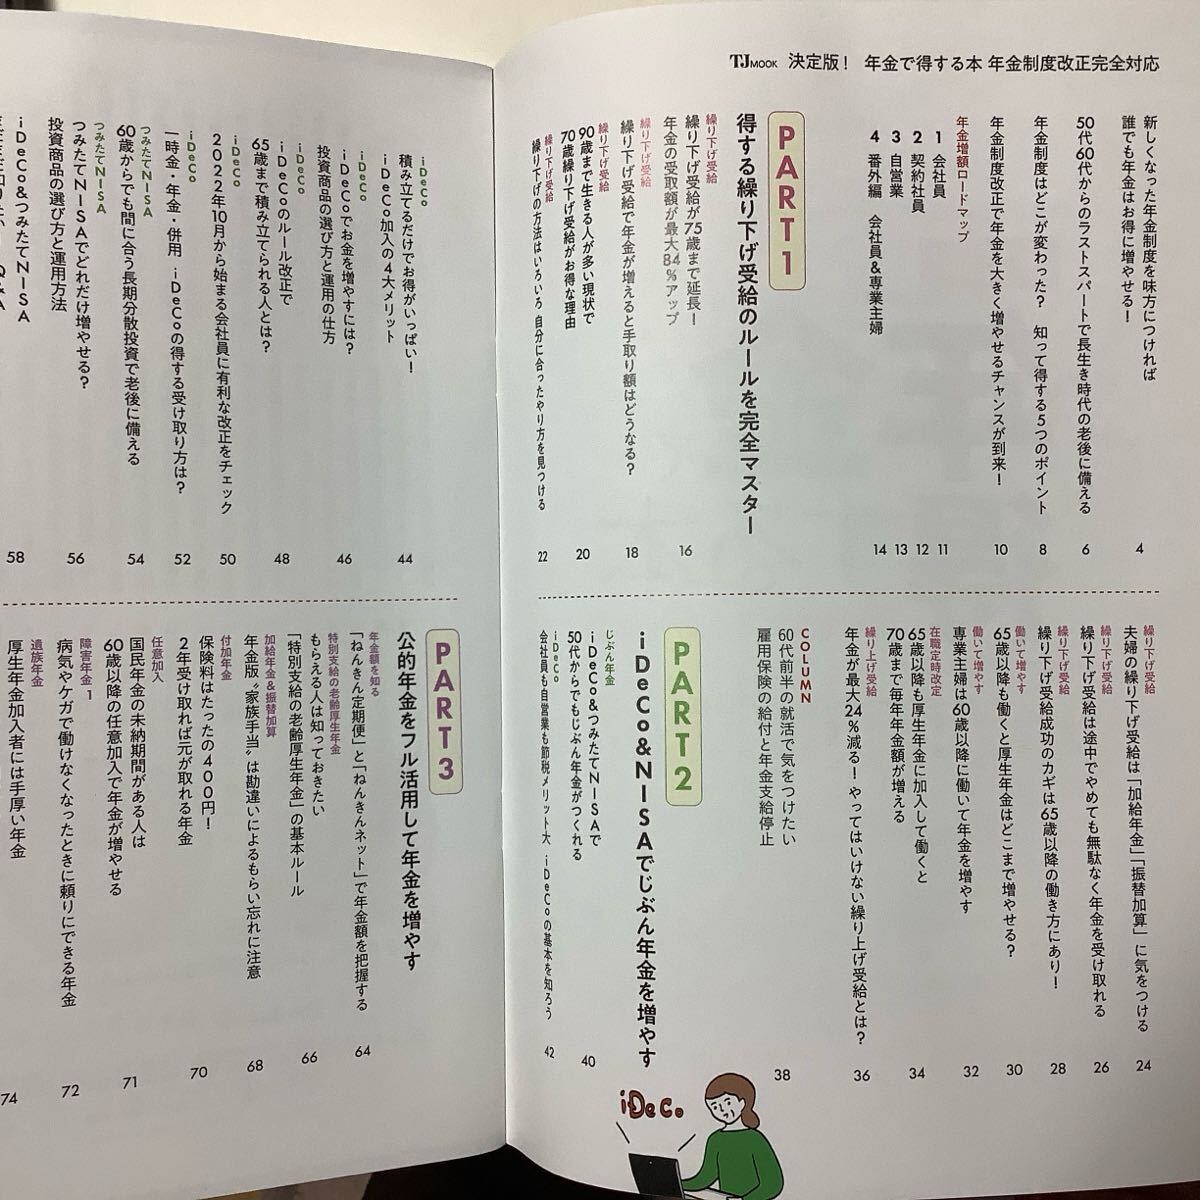 TJ MOOK 決定版！ 年金で得する本 年金制度改正完全対応
新しくなった年金制度を味方につければ
誰でも年金はお得に増やせる！
4
50代60代からのラストスパートで長生き時代の老後に備える
6
年金制度はどこが変わった？ 知って得する5つのポイント
8
年金制度改正で年金を大きく増やせるチャンスが到来！
10
年金増額ロードマップ
1 会社員
11
2 契約社員
12
3 自営業
13
4 番外編 会社員&専業主婦
14
PART1
得する繰り下げ受給のルールを完全マスター
繰り下げ受給
繰り下げ受給が75歳まで延長！
年金の受取額が最大84%アップ
16
繰り下げ受給
繰り下げ受給で年金が増えると手取り額はどうなる？
18
繰り下げ受給
90歳まで生きる人が多い現状で
70歳繰り下げ受給がお得な理由
20
繰り下げ受給
繰り下げの方法はいろいろ 自分に合ったやり方を見つける
22
繰り下げ受給
夫婦の繰り下げ受給は「加給年金」「振替加算」に気をつける
24
繰り下げ受給
繰り下げ受給は途中でやめても無駄なく年金を受け取れる
26
繰り下げ受給
繰り下げ受給成功のカギは65歳以降の働き方にあり！
28
働いて増やす
65歳以降も働くと厚生年金はどこまで増やせる？
30
働いて増やす
専業主婦は60歳以降に働いて年金を増やす
32
在職定時改定
65歳以降も厚生年金に加入して働くと
70歳まで毎年年金額が増える
34
繰り上げ受給
年金が最大24%減る！やってはいけない繰り上げ受給とは？
36
COLUMN
60代前半の就活で気をつけたい
雇用保険の給付と年金支給停止
38
PART2
iDeCo&NISAでじぶん年金を増やす
じぶん年金
iDeCo&つみたてNISAで
50代からでもじぶん年金がつくれる
40
iDeCo
会社員も自営業も節税メリット大 iDeCoの基本を知ろう
42
iDeCo
iDeCo
積み立てるだけでお得がいっぱい！
iDeCo加入の4大メリット
44
iDeCo
iDeCoでお金を増やすには？
投資商品の選び方と運用の仕方
46
iDeCo
iDeCoのルール改正で
65歳まで積み立てられる人とは？
48
iDeCo
2022年10月から始まる会社員に有利な改正をチェック
50
iDeCo
一時金・年金・併用 iDeCoの得する受け取り方は？
52
つみたてNISA
60歳からでも間に合う長期分散投資で老後に備える
54
つみたてNISA
つみたてNISAでどれだけ増やせる？
投資商品の選び方と運用方法
56
iDeCo&つみたてNISA
Q&A
58
PART3
公的年金をフル活用して年金を増やす
年金額を知る
「ねんきん定期便」と「ねんきんネット」で年金額を把握する
64
特別支給の老齢厚生年金
もらえる人は知っておきたい
「特別支給の老齢厚生年金」の基本ルール
66
加給年金&振替加算
年金版〝家族手当〟は勘違いによるもらい忘れに注意
68
付加年金
保険料はたったの400円！
2年受け取れば元が取れる年金
70
任意加入
国民年金の未納期間がある人は
60歳以降の任意加入で年金が増やせる
71
障害年金1
病気やケガで働けなくなったときに頼りにできる年金
72
遺族年金
厚生年金加入者には手厚い年金
74